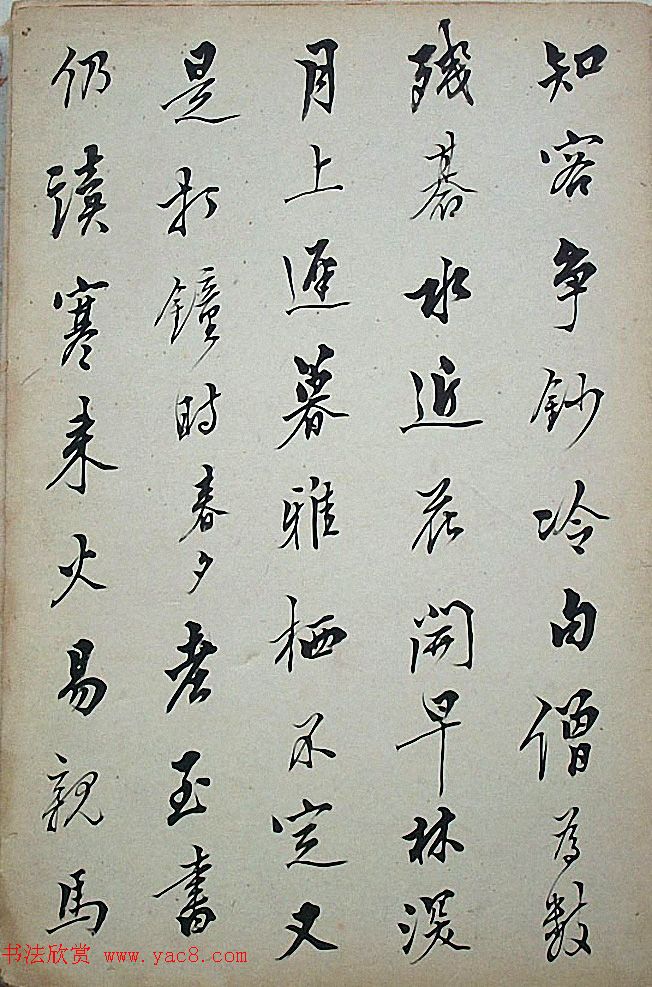 知客争鈔冷句僧為數
殘碁水近花開早林深
月上遲暮雅栖不定又
是打鐘時春夕老至書
仍讀寒来火易親馬
书法欣赏 www.yac8.com